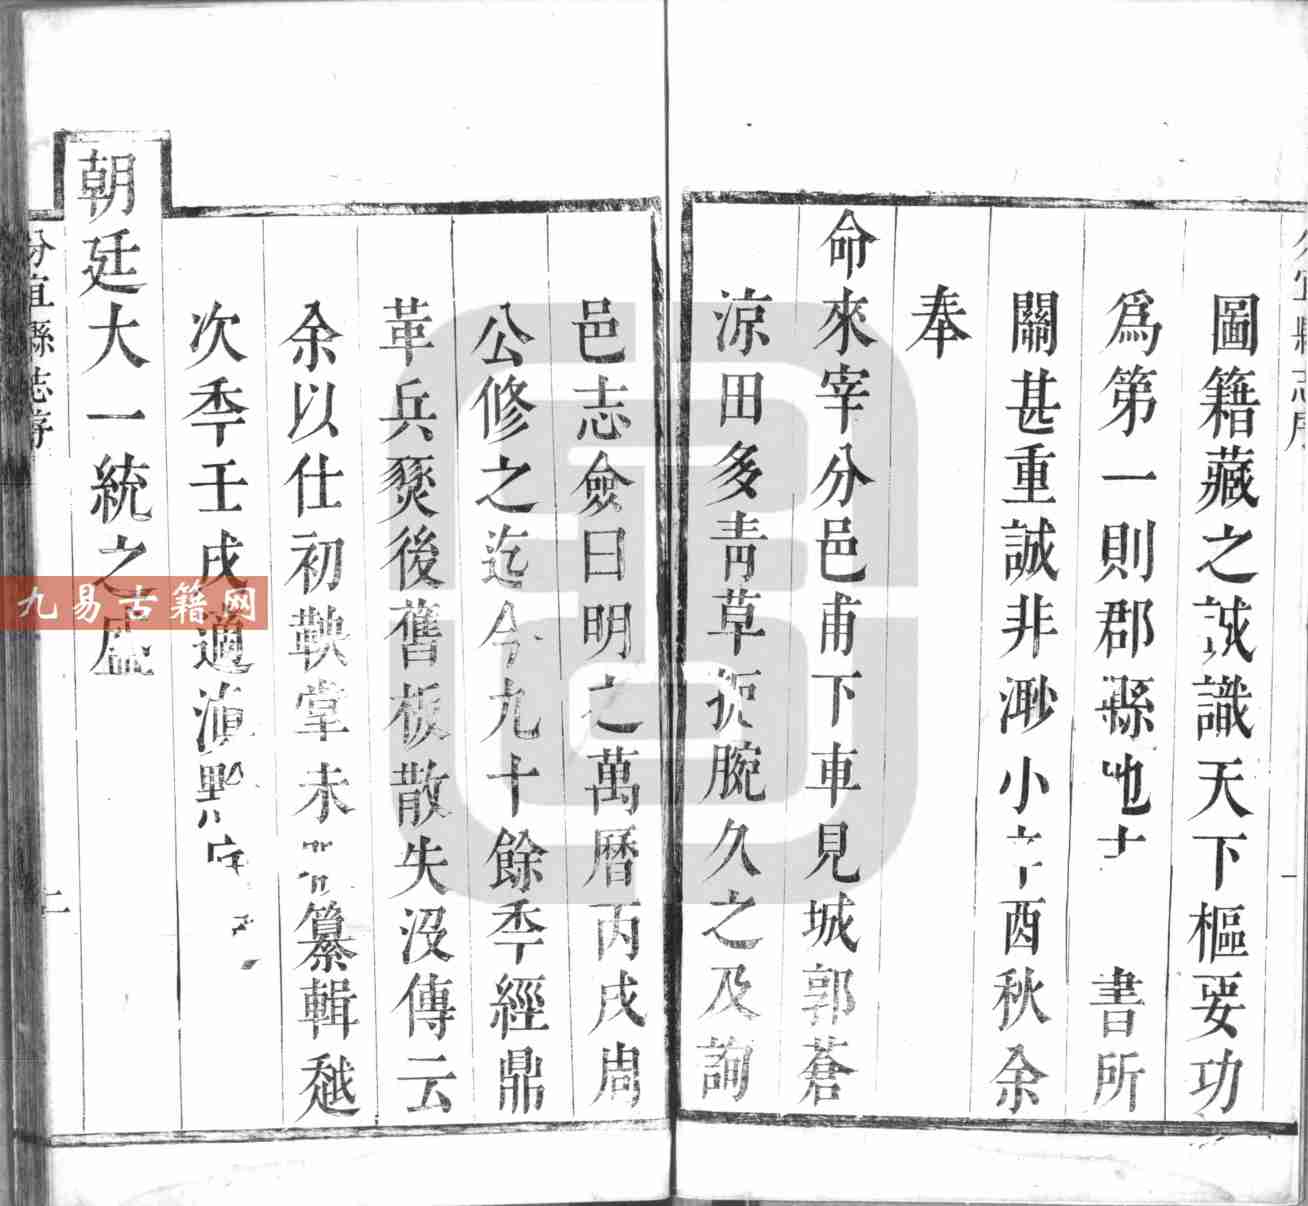 圖籍藏之誠識天下樞要功
爲第一則郡縣地 書所
關甚重誠非渺小辛酉秋余
奉
命來宰分邑甫下車見城郭蒼
涼田多靑草扼腕久之及詢
邑志僉曰明之萬曆丙戌周
公修之迄今九十餘秊經鼎
革兵燹後舊板散失沒傳云
余以仕初鞅堂未 纂輯越
次秊壬戌適滇黔
朝廷大一統之盛
分宜縣志序
二
分宜縣志序
一
九易古籍网